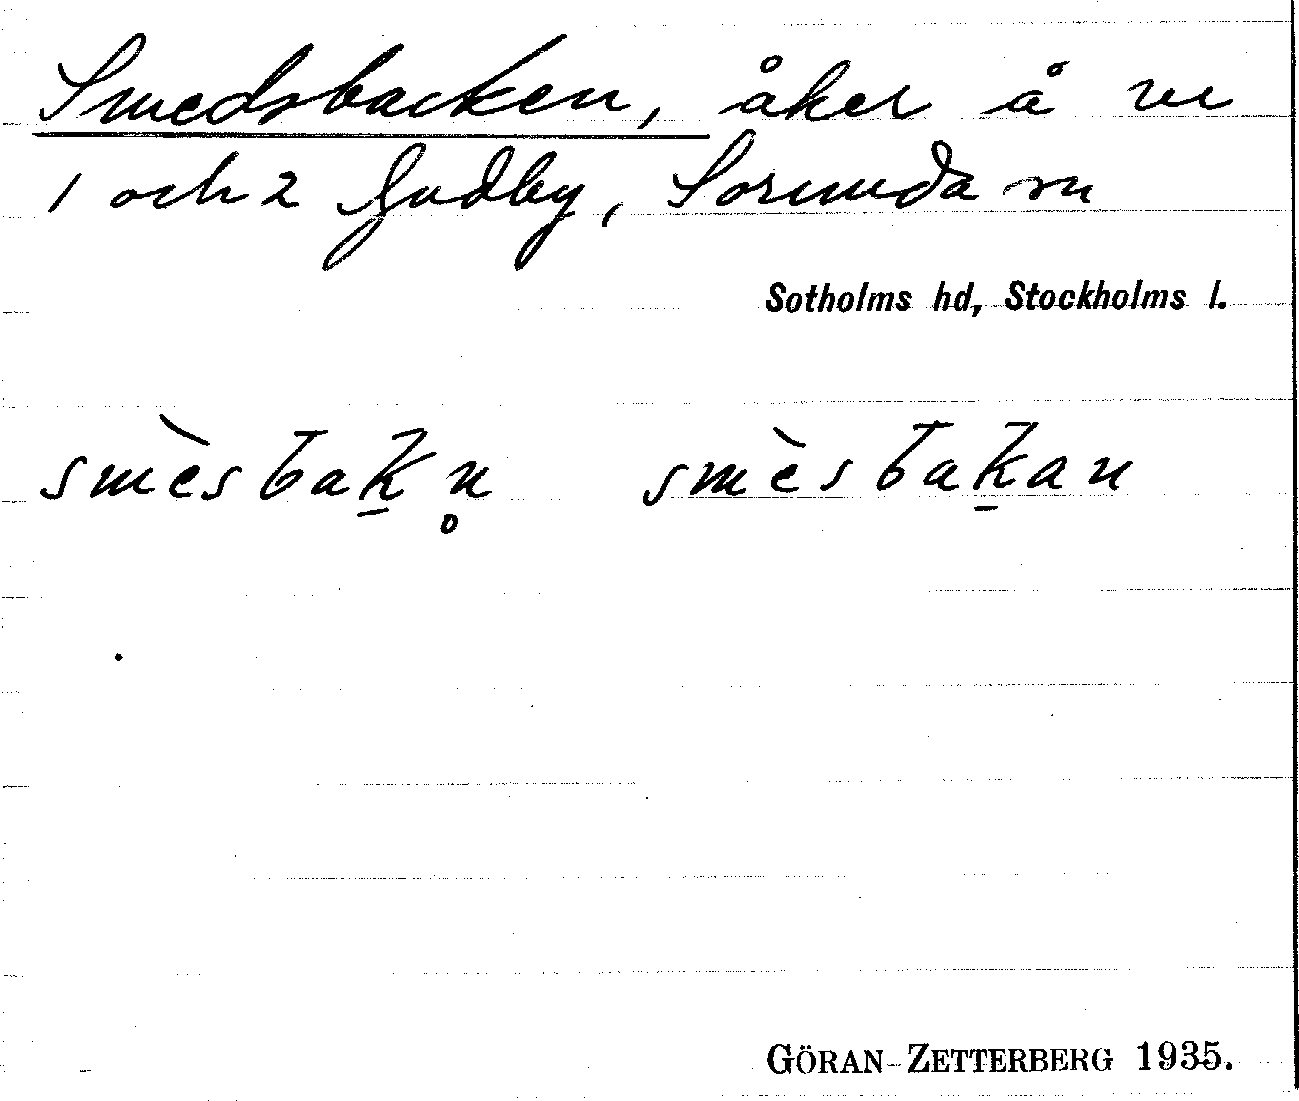 Smedsbacken, åker å nr
1 och 2 Gudby, Sorunda sn
Sotholms hd, Stockholms l.
smèsbak̠n̥ smèsbak̠an
GÖRAN ZETTERBERG 1935.